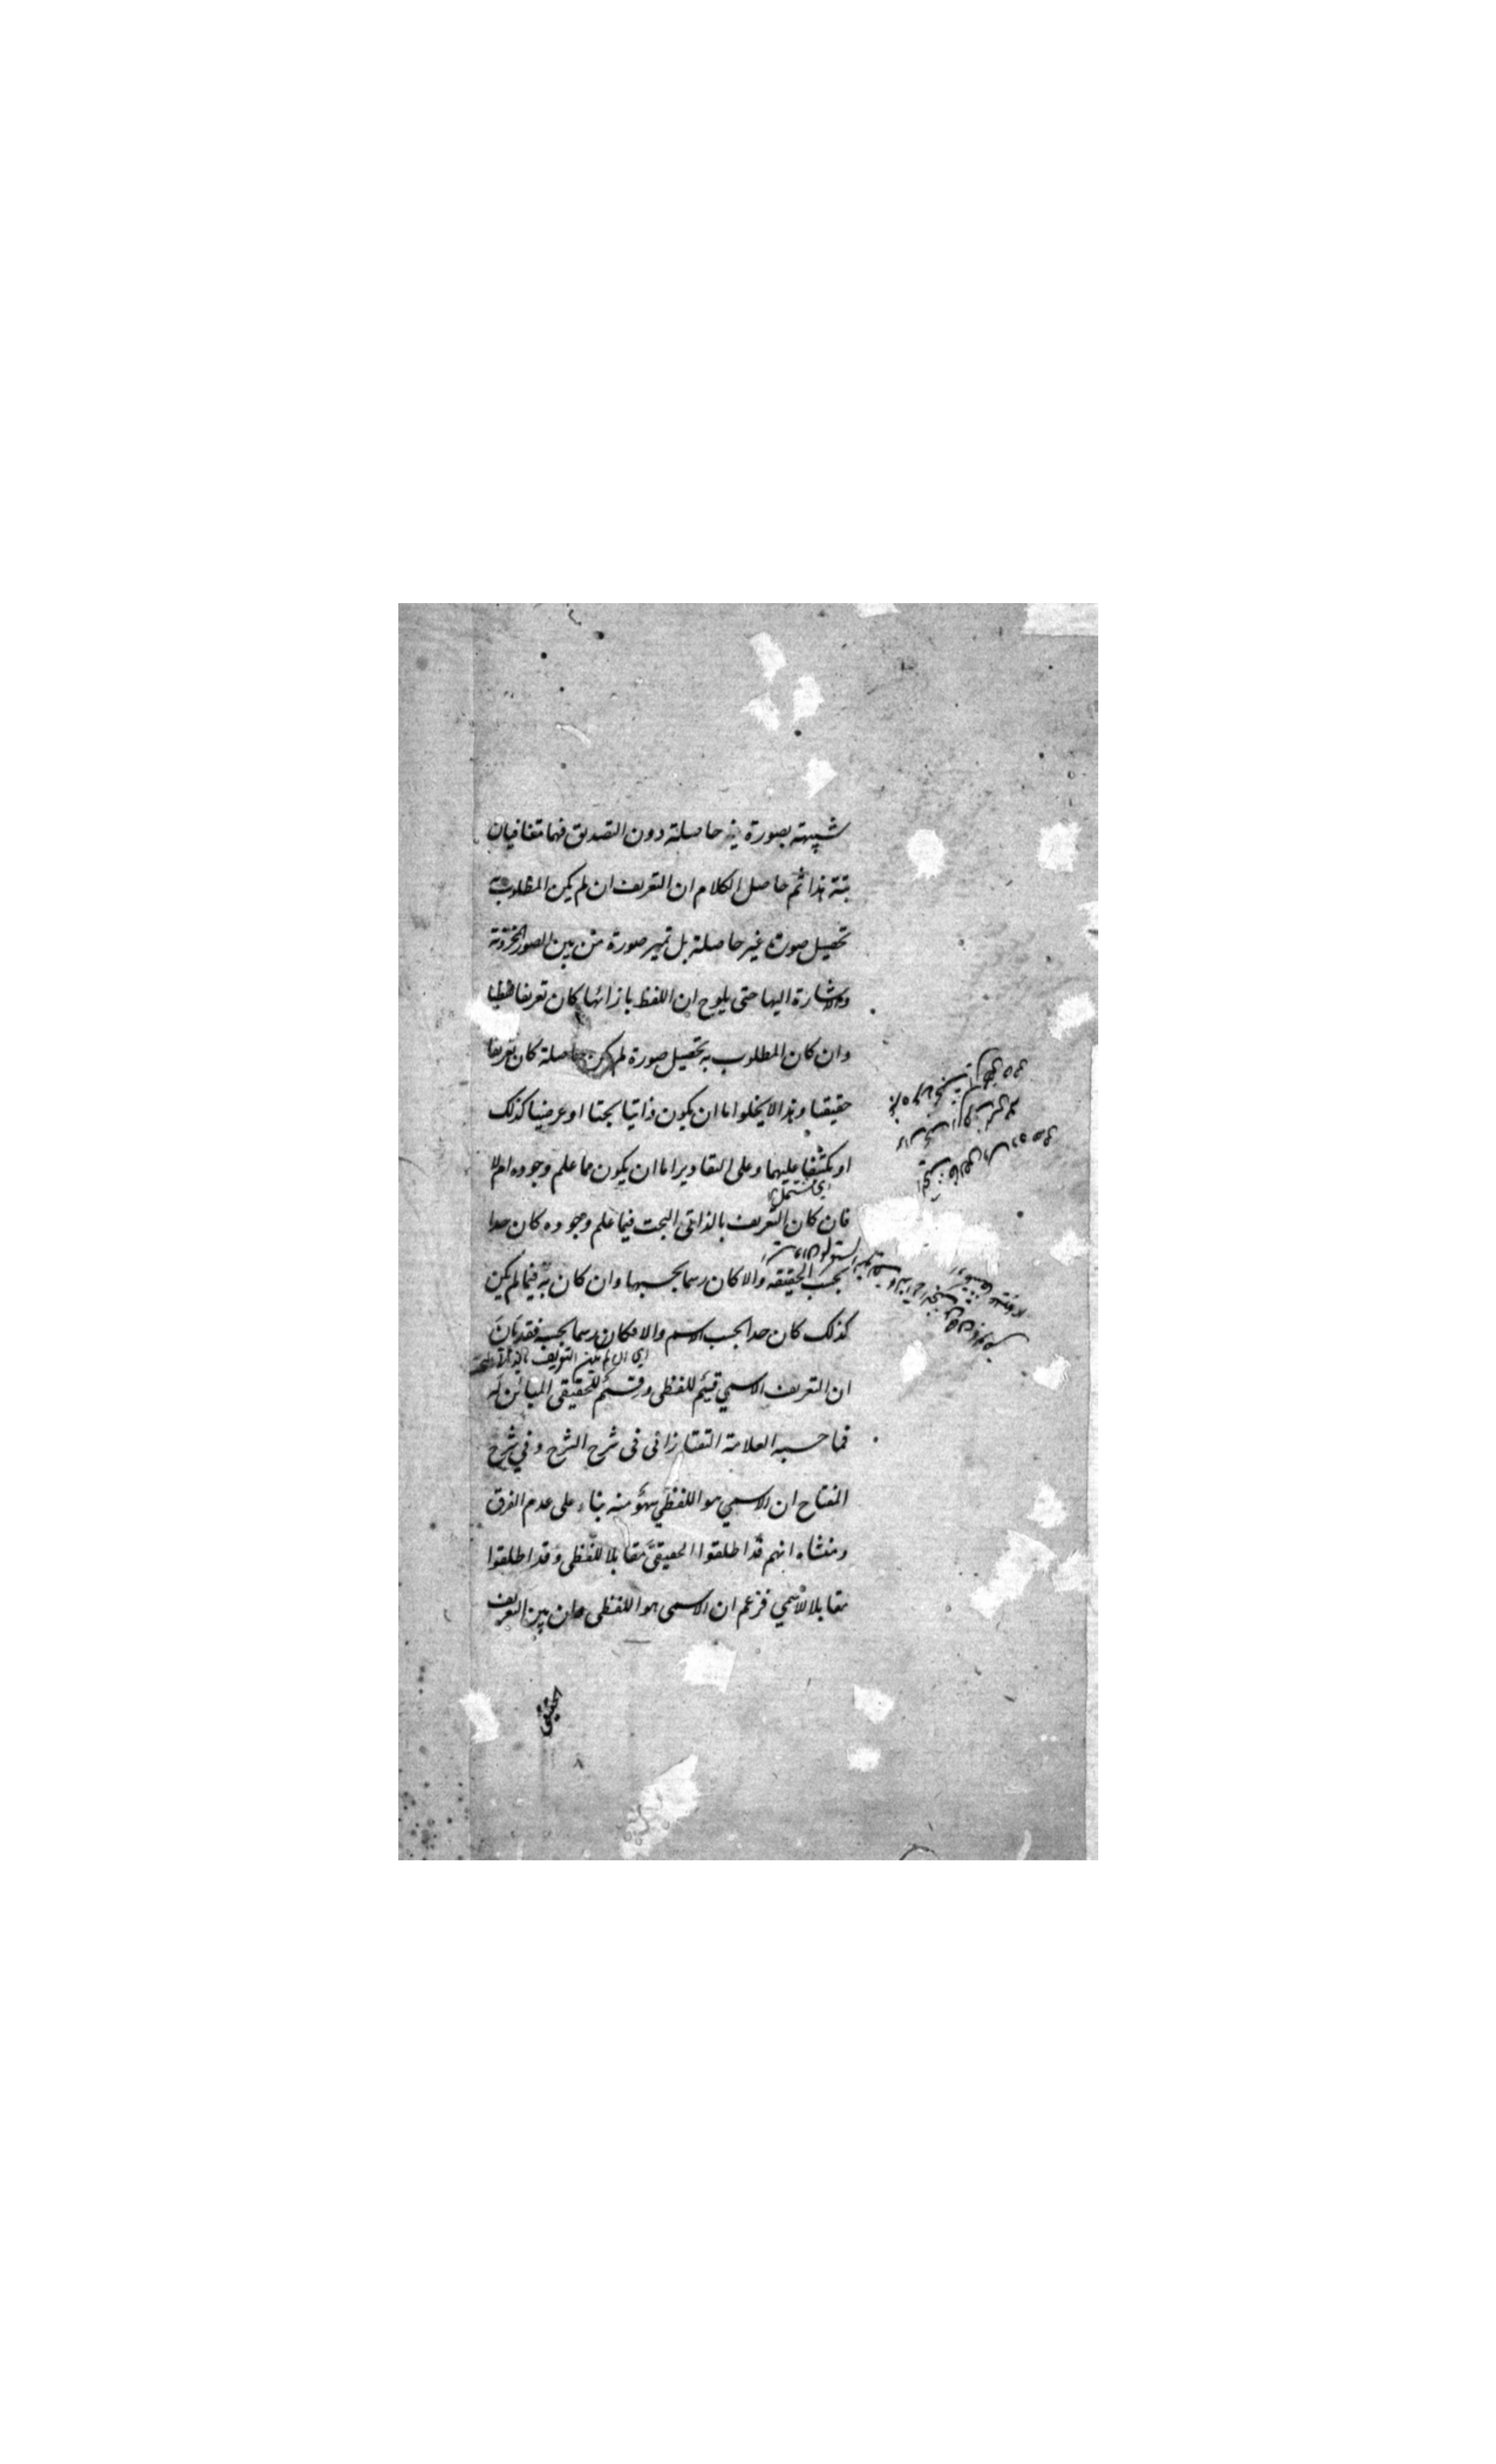 شبيهة بصورة غير حاصلة دون التصديق فهما متنافيان
بتة هذا ثم حاصل الكلام ان التعريف ان لم يكن المطلوب به
تحصيل صورة غير حاصلة بل تميز صورة من بين الصور المخزونة
والاشارة اليها حتى يلوح ان اللفظ بازائها كان تعريفا لفظيا
وان كان المطلوب به تحصيل صورة لم تكن حاصلة كان تعريفا
حقيقيا وهذا لا يخلوا اما ان يكون ذاتيا بحتا او عرضيا كذلك
او مكتنفا عليهما وعلى التقادير اما ان يكون مما علم وجوده ام لا
اي مشتملا
فان كان التعريف بالذاتي البحت فيما علم وجوده كان حدا
بحسب الحقيقة والا كان رسما بحسبها وان كان به فيما لم يكن
كذلك كان حدا بحسب الاسم والا فكان رسما بحسبه فقد بان
اي ان لم يكن التعريف بالذاتي البحت
ان التعريف الاسمي قسيم للفظي وقسم للحقيقي المبائن له
فما حسبه العلامة التفتازاني في شرح الشرح وفي شرح
المفتاح ان الاسمي هو اللفظي سهو منه بناء على عدم الفرق
ومنشاه انهم قد اطلقوا الحقيقي مقابلا للفظي وقد اطلقوا
مقابلا للاسمي فزعم ان الاسمى هو اللفظي وان بين التعريف
الحقيقي